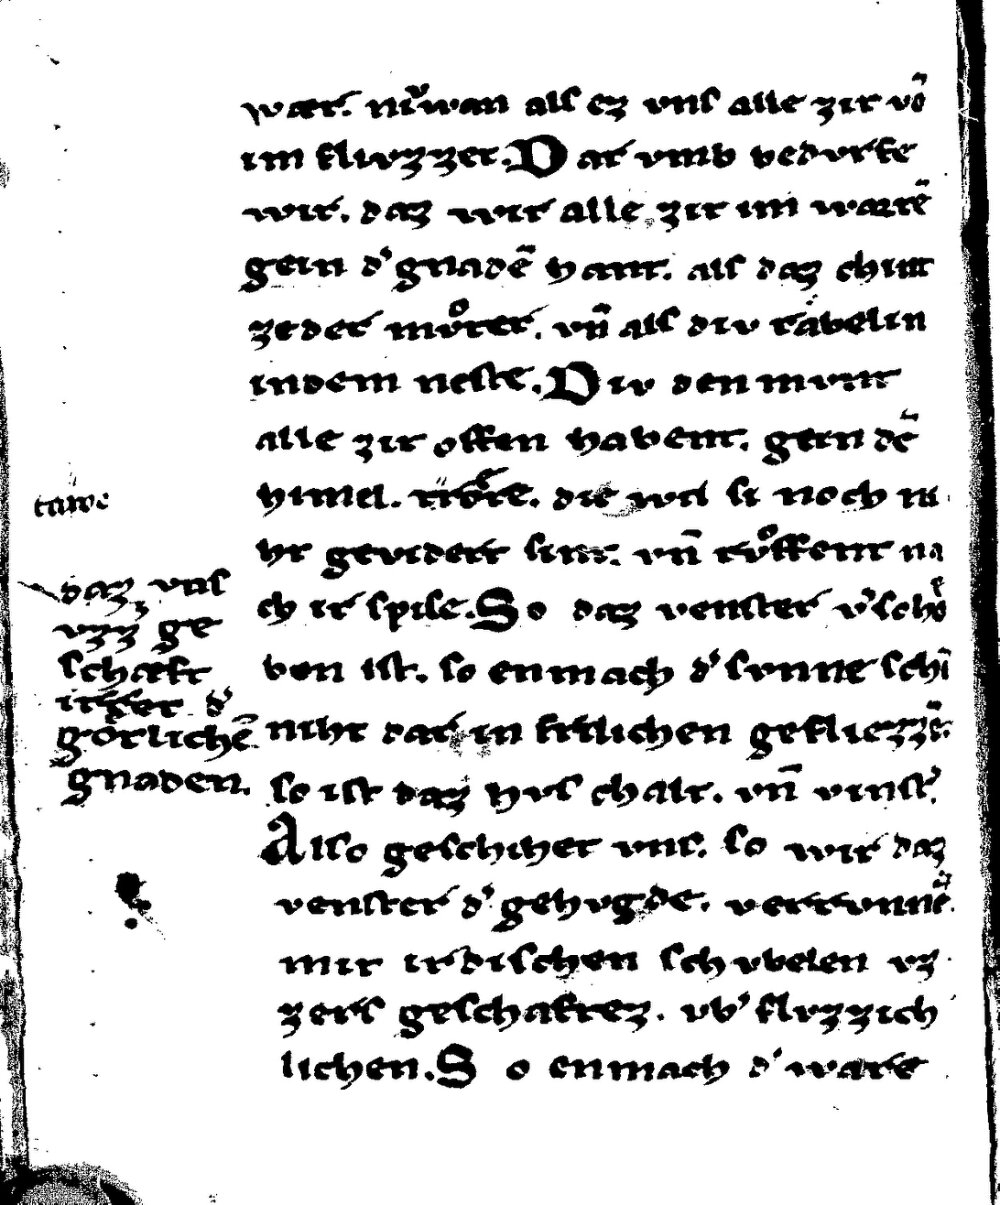 wær. nv̊wan als ez vns alle zit vō
im flivzzet. Dar vmb bedvrfe
wir. daz wir alle zit im warē
gein d' gnadē hant. als daz chint
ze der mv̊ter. vn̄ als div rabelin
in dem neste. Div den mvnt
alle zit offen habent. gein dē
himel. die wil si noch ni
ht gevidert sint. vn̄ rv̊ffent na
ch ir spise. So daz venster v'scho
ben ist. so enmach d' svnne schī
niht dar in frilichen gefliezzē.
so ist daz hvs chalt. vn̄ vinst'.
Also geschihet vns. so wir daz
venster d' gehvgde. verrvnnē
mit irdischen schvbelen vz
zers geschæftez. vb' flvzzich
lichen. So enmach d' ware
tawe
daz vns
vzz ge
schæft
irret d'
gotlichē
gnaden.